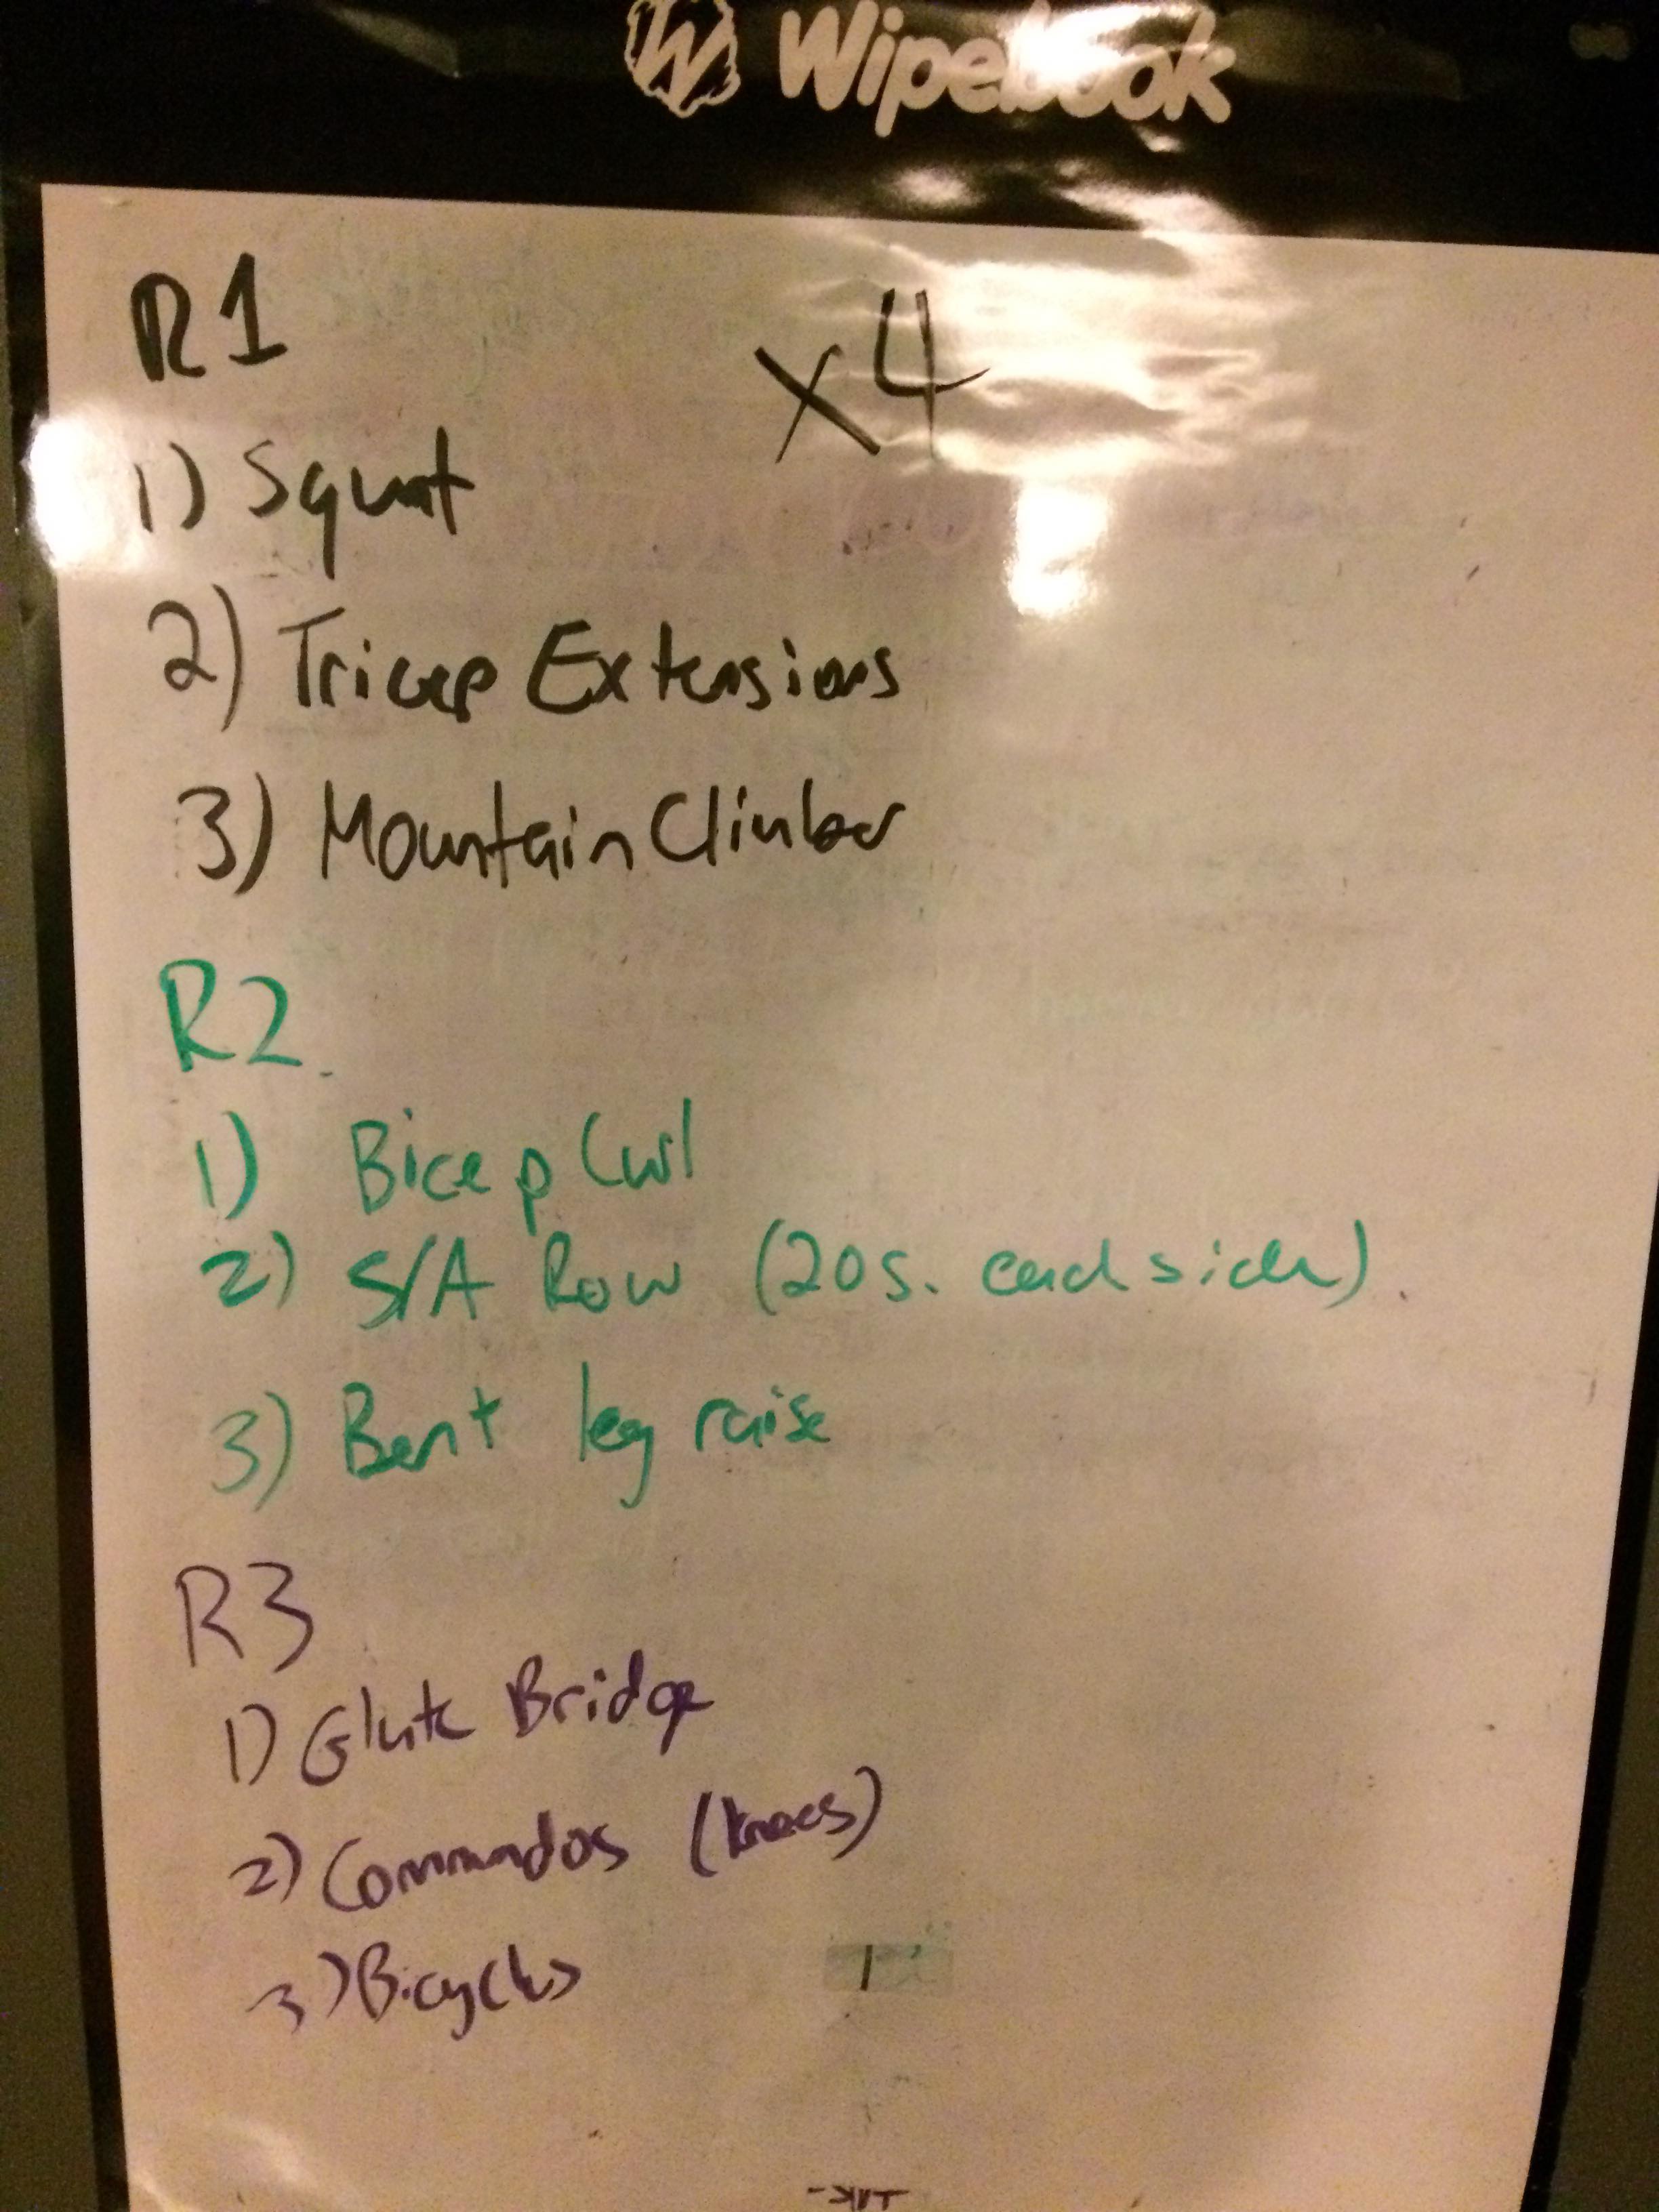 Wipebook
R1 x4
1) Squat
2) Tricep Extensions
3) Mountain Climber
R2
1) Bicep Curl
2) S/A Row (20s. each side)
3) Bent leg raise
R3
1) Glute Bridge
2) Commandos (knees)
3) Bicycles